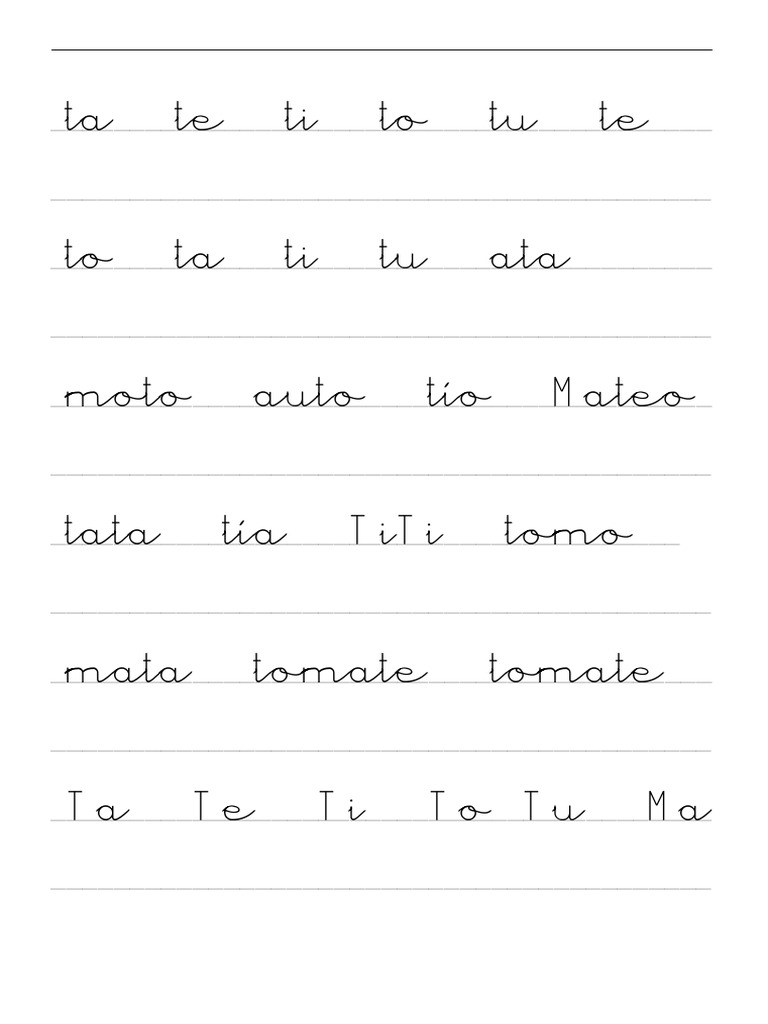 ta te ti to tu te
to ta ti tu ata
moto auto tío Mateo
tata tía TiTi tomo
mata tomate tomate
Ta Te Ti To Tu Ma